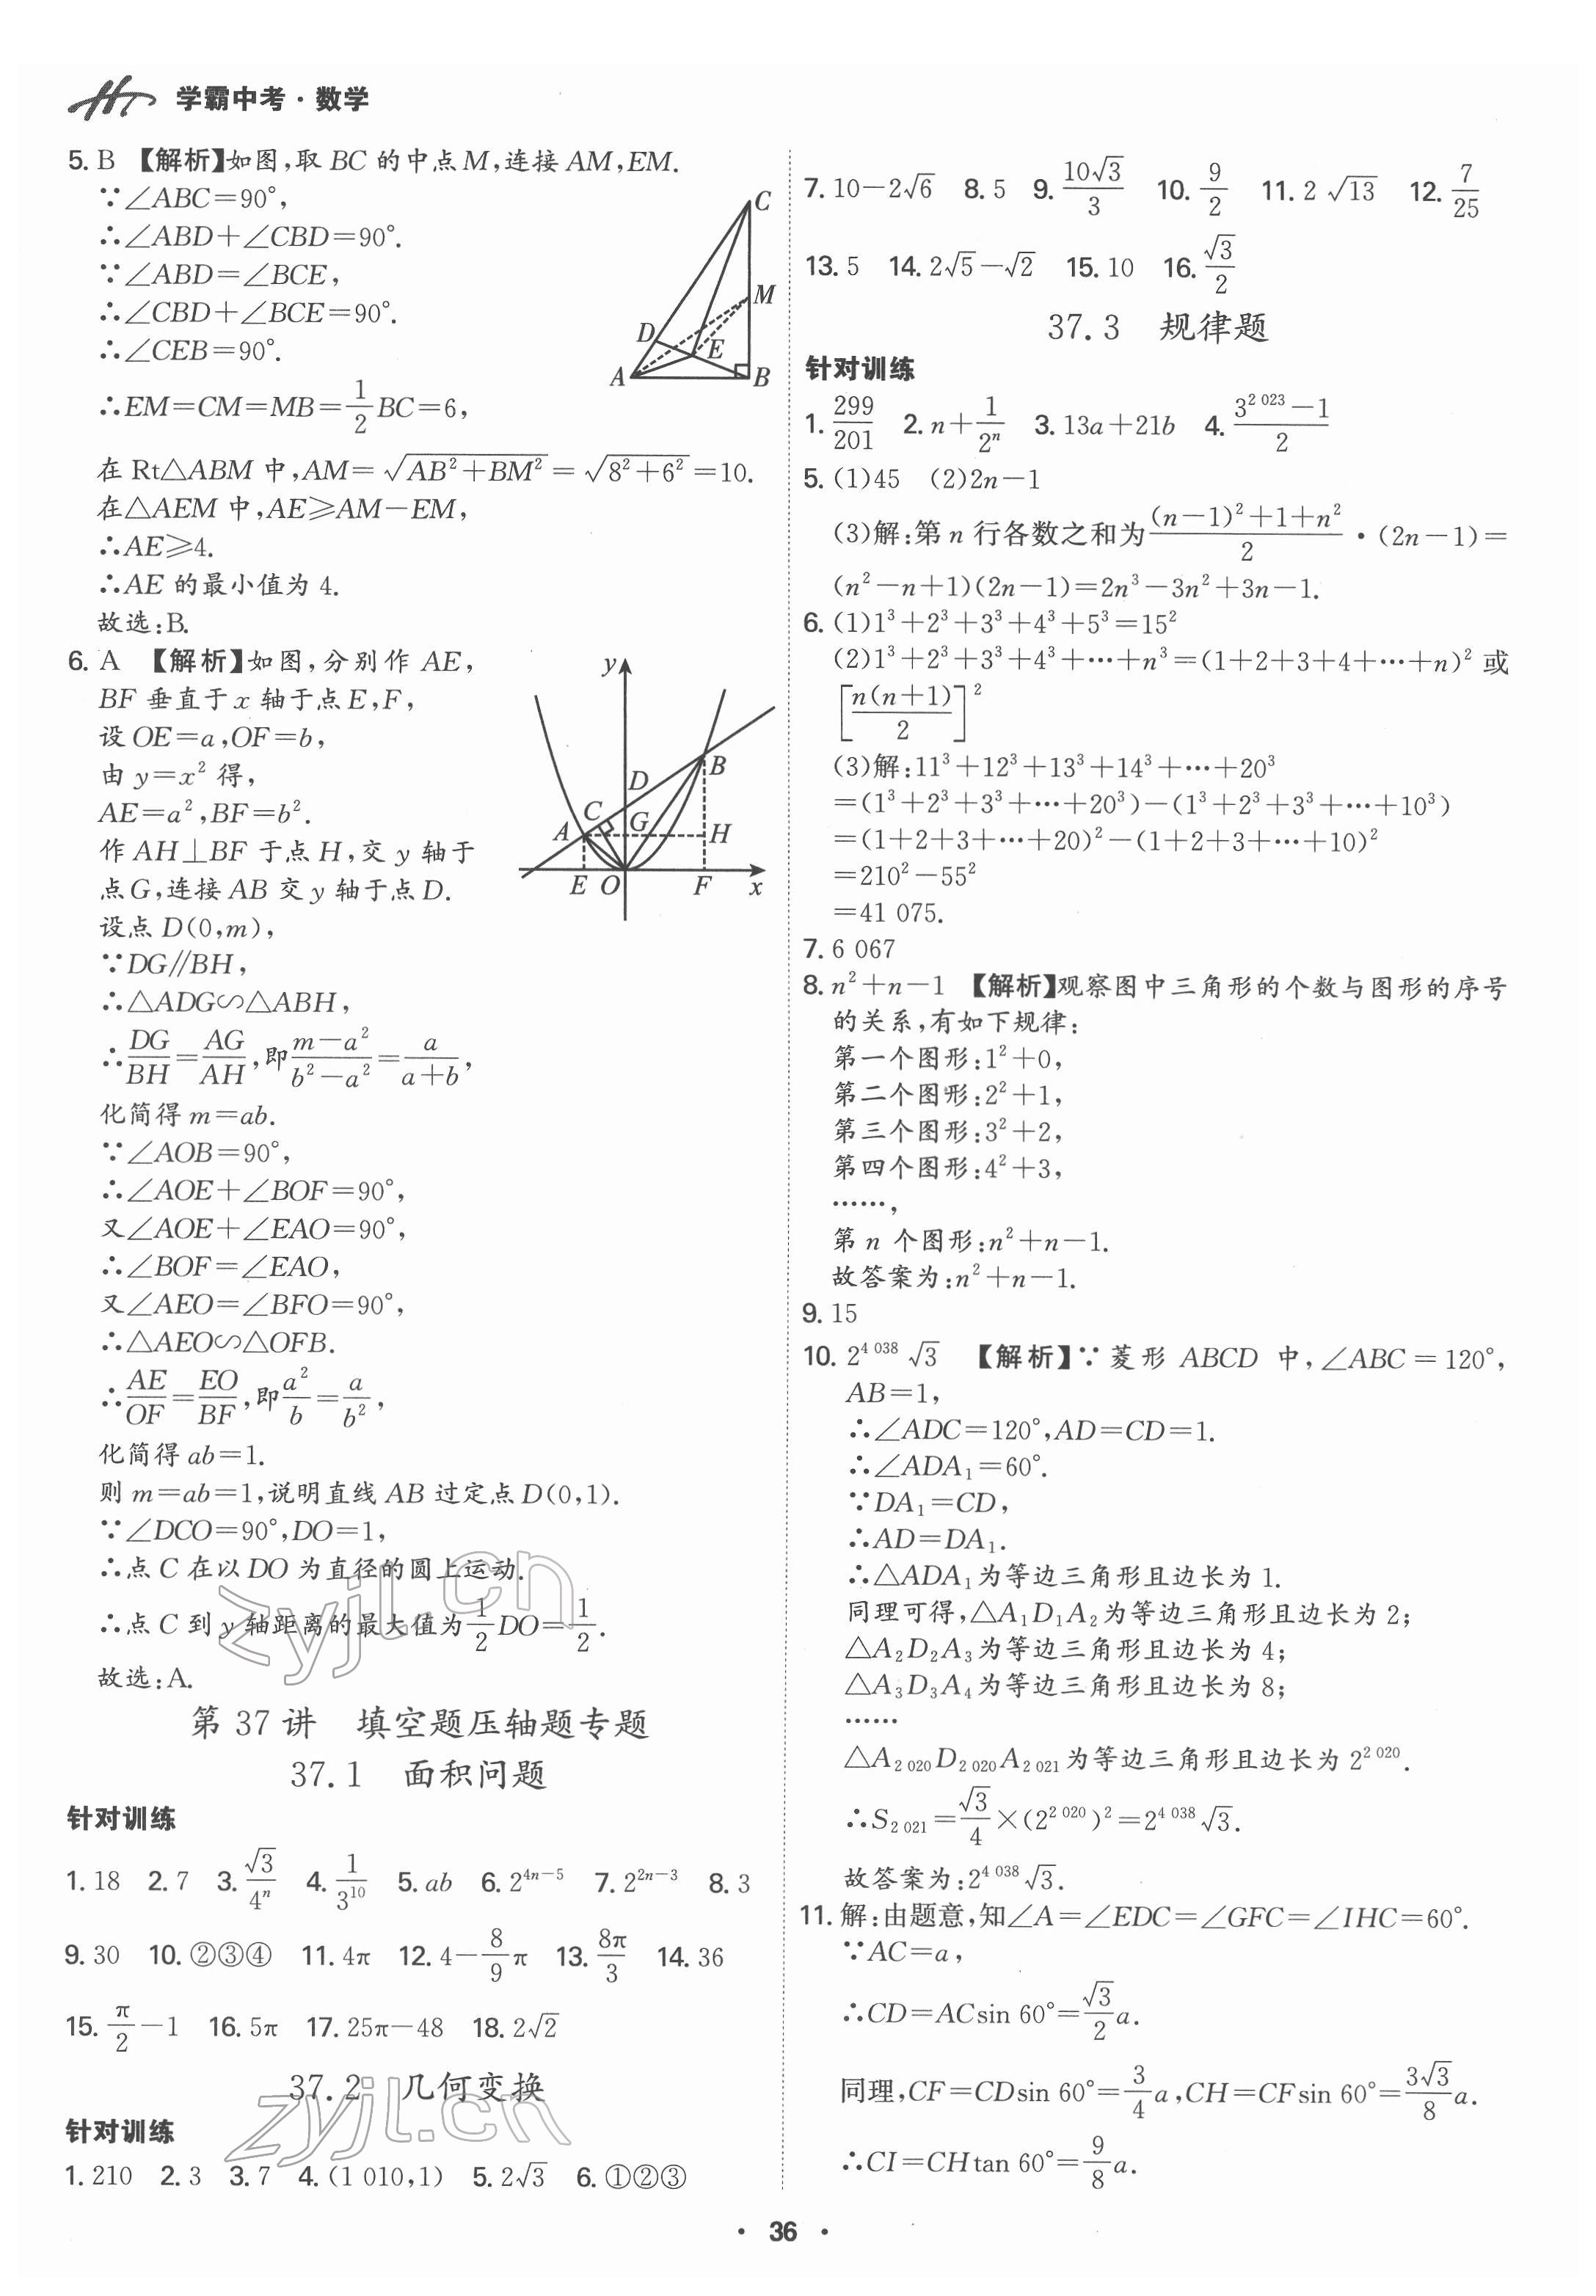 学霸中考·数学
5. B 【解析】如图,取 BC 的中点 M,连接 AM,EM.
∵∠ABC=90°,
∴∠ABD+∠CBD=90°.
∵∠ABD=∠BCE,
∴∠CBD+∠BCE=90°.
∴∠CEB=90°.
∴EM=CM=MB=\frac{1}{2}BC=6,
在 Rt△ABM 中,AM=√(AB²+BM²)=√(8²+6²)=10.
在△AEM 中,AE≥AM-EM,
∴AE≥4.
∴AE 的最小值为 4.
故选:B.
C
M
D
E
A
B
6. A 【解析】如图,分别作 AE,
BF 垂直于 x 轴于点 E,F,
设 OE=a,OF=b,
由 y=x² 得,
AE=a²,BF=b².
作 AH⊥BF 于点 H,交 y 轴于
点 G,连接 AB 交 y 轴于点 D.
设点 D(0,m),
∵DG∥BH,
∴△ADG∽△ABH,
∴\frac{DG}{BH}=\frac{AG}{AH},即\frac{m-a²}{b²-a²}=\frac{a}{a+b},
化简得 m=ab.
∵∠AOB=90°,
∴∠AOE+∠BOF=90°,
又∠AOE+∠EAO=90°,
∴∠BOF=∠EAO,
又∠AEO=∠BFO=90°,
∴△AEO∽△OFB.
∴\frac{AE}{OF}=\frac{EO}{BF},即\frac{a²}{b}=\frac{a}{b²},
化简得 ab=1.
则 m=ab=1,说明直线 AB 过定点 D(0,1).
∵∠DCO=90°,DO=1,
∴点 C 在以 DO 为直径的圆上运动.
∴点 C 到 y 轴距离的最大值为\frac{1}{2}DO=\frac{1}{2}.
故选:A.
y
D
B
C
A
G
H
E O F x
第 37 讲 填空题压轴题专题
37.1 面积问题
针对训练
1. 18 2. 7 3. \frac{√3}{4^n} 4. \frac{1}{3^{10}} 5. ab 6. 2^{4n-5} 7. 2^{2n-3} 8. 3
9. 30 10. ②③④ 11. 4π 12. 4-\frac{8}{9}π 13. \frac{8π}{3} 14. 36
15. \frac{π}{2}-1 16. 5π 17. 25π-48 18. 2√2
37.2 几何变换
针对训练
1. 210 2. 3 3. 7 4. (1 010,1) 5. 2√3 6. ①②③
7. 10-2√6 8. 5 9. \frac{10√3}{3} 10. \frac{9}{2} 11. 2√13 12. \frac{7}{25}
13. 5 14. 2√5-√2 15. 10 16. \frac{√3}{2}
37.3 规律题
针对训练
1. \frac{299}{201} 2. n+\frac{1}{2^n} 3. 13a+21b 4. \frac{3^{2 023}-1}{2}
5. (1)45 (2)2n-1
(3)解:第 n 行各数之和为\frac{(n-1)²+1+n²}{2}·(2n-1)=
(n²-n+1)(2n-1)=2n³-3n²+3n-1.
6. (1)1³+2³+3³+4³+5³=15²
(2)1³+2³+3³+4³+…+n³=(1+2+3+4+…+n)² 或
[\frac{n(n+1)}{2}]²
(3)解:11³+12³+13³+14³+…+20³
=(1³+2³+3³+…+20³)-(1³+2³+3³+…+10³)
=(1+2+3+…+20)²-(1+2+3+…+10)²
=210²-55²
=41 075.
7. 6 067
8. n²+n-1 【解析】观察图中三角形的个数与图形的序号
的关系,有如下规律:
第一个图形:1²+0,
第二个图形:2²+1,
第三个图形:3²+2,
第四个图形:4²+3,
……,
第 n 个图形:n²+n-1.
故答案为:n²+n-1.
9. 15
10. 2^{4 038}√3 【解析】∵菱形 ABCD 中,∠ABC=120°,
AB=1,
∴∠ADC=120°,AD=CD=1.
∴∠ADA₁=60°.
∵DA₁=CD,
∴AD=DA₁.
∴△ADA₁为等边三角形且边长为 1.
同理可得,△A₁D₁A₂为等边三角形且边长为 2;
△A₂D₂A₃为等边三角形且边长为 4;
△A₃D₃A₄为等边三角形且边长为 8;
……
△A_{2 020}D_{2 020}A_{2 021}为等边三角形且边长为 2^{2 020}.
∴S_{2 021}=\frac{√3}{4}×(2^{2 020})²=2^{4 038}√3.
故答案为:2^{4 038}√3.
11. 解:由题意,知∠A=∠EDC=∠GFC=∠IHC=60°.
∵AC=a,
∴CD=ACsin 60°=\frac{√3}{2}a.
同理,CF=CDsin 60°=\frac{3}{4}a,CH=CFsin 60°=\frac{3√3}{8}a.
∴CI=CHtan 60°=\frac{9}{8}a.
zyjl.cn
zyjl.cn
· 36 ·